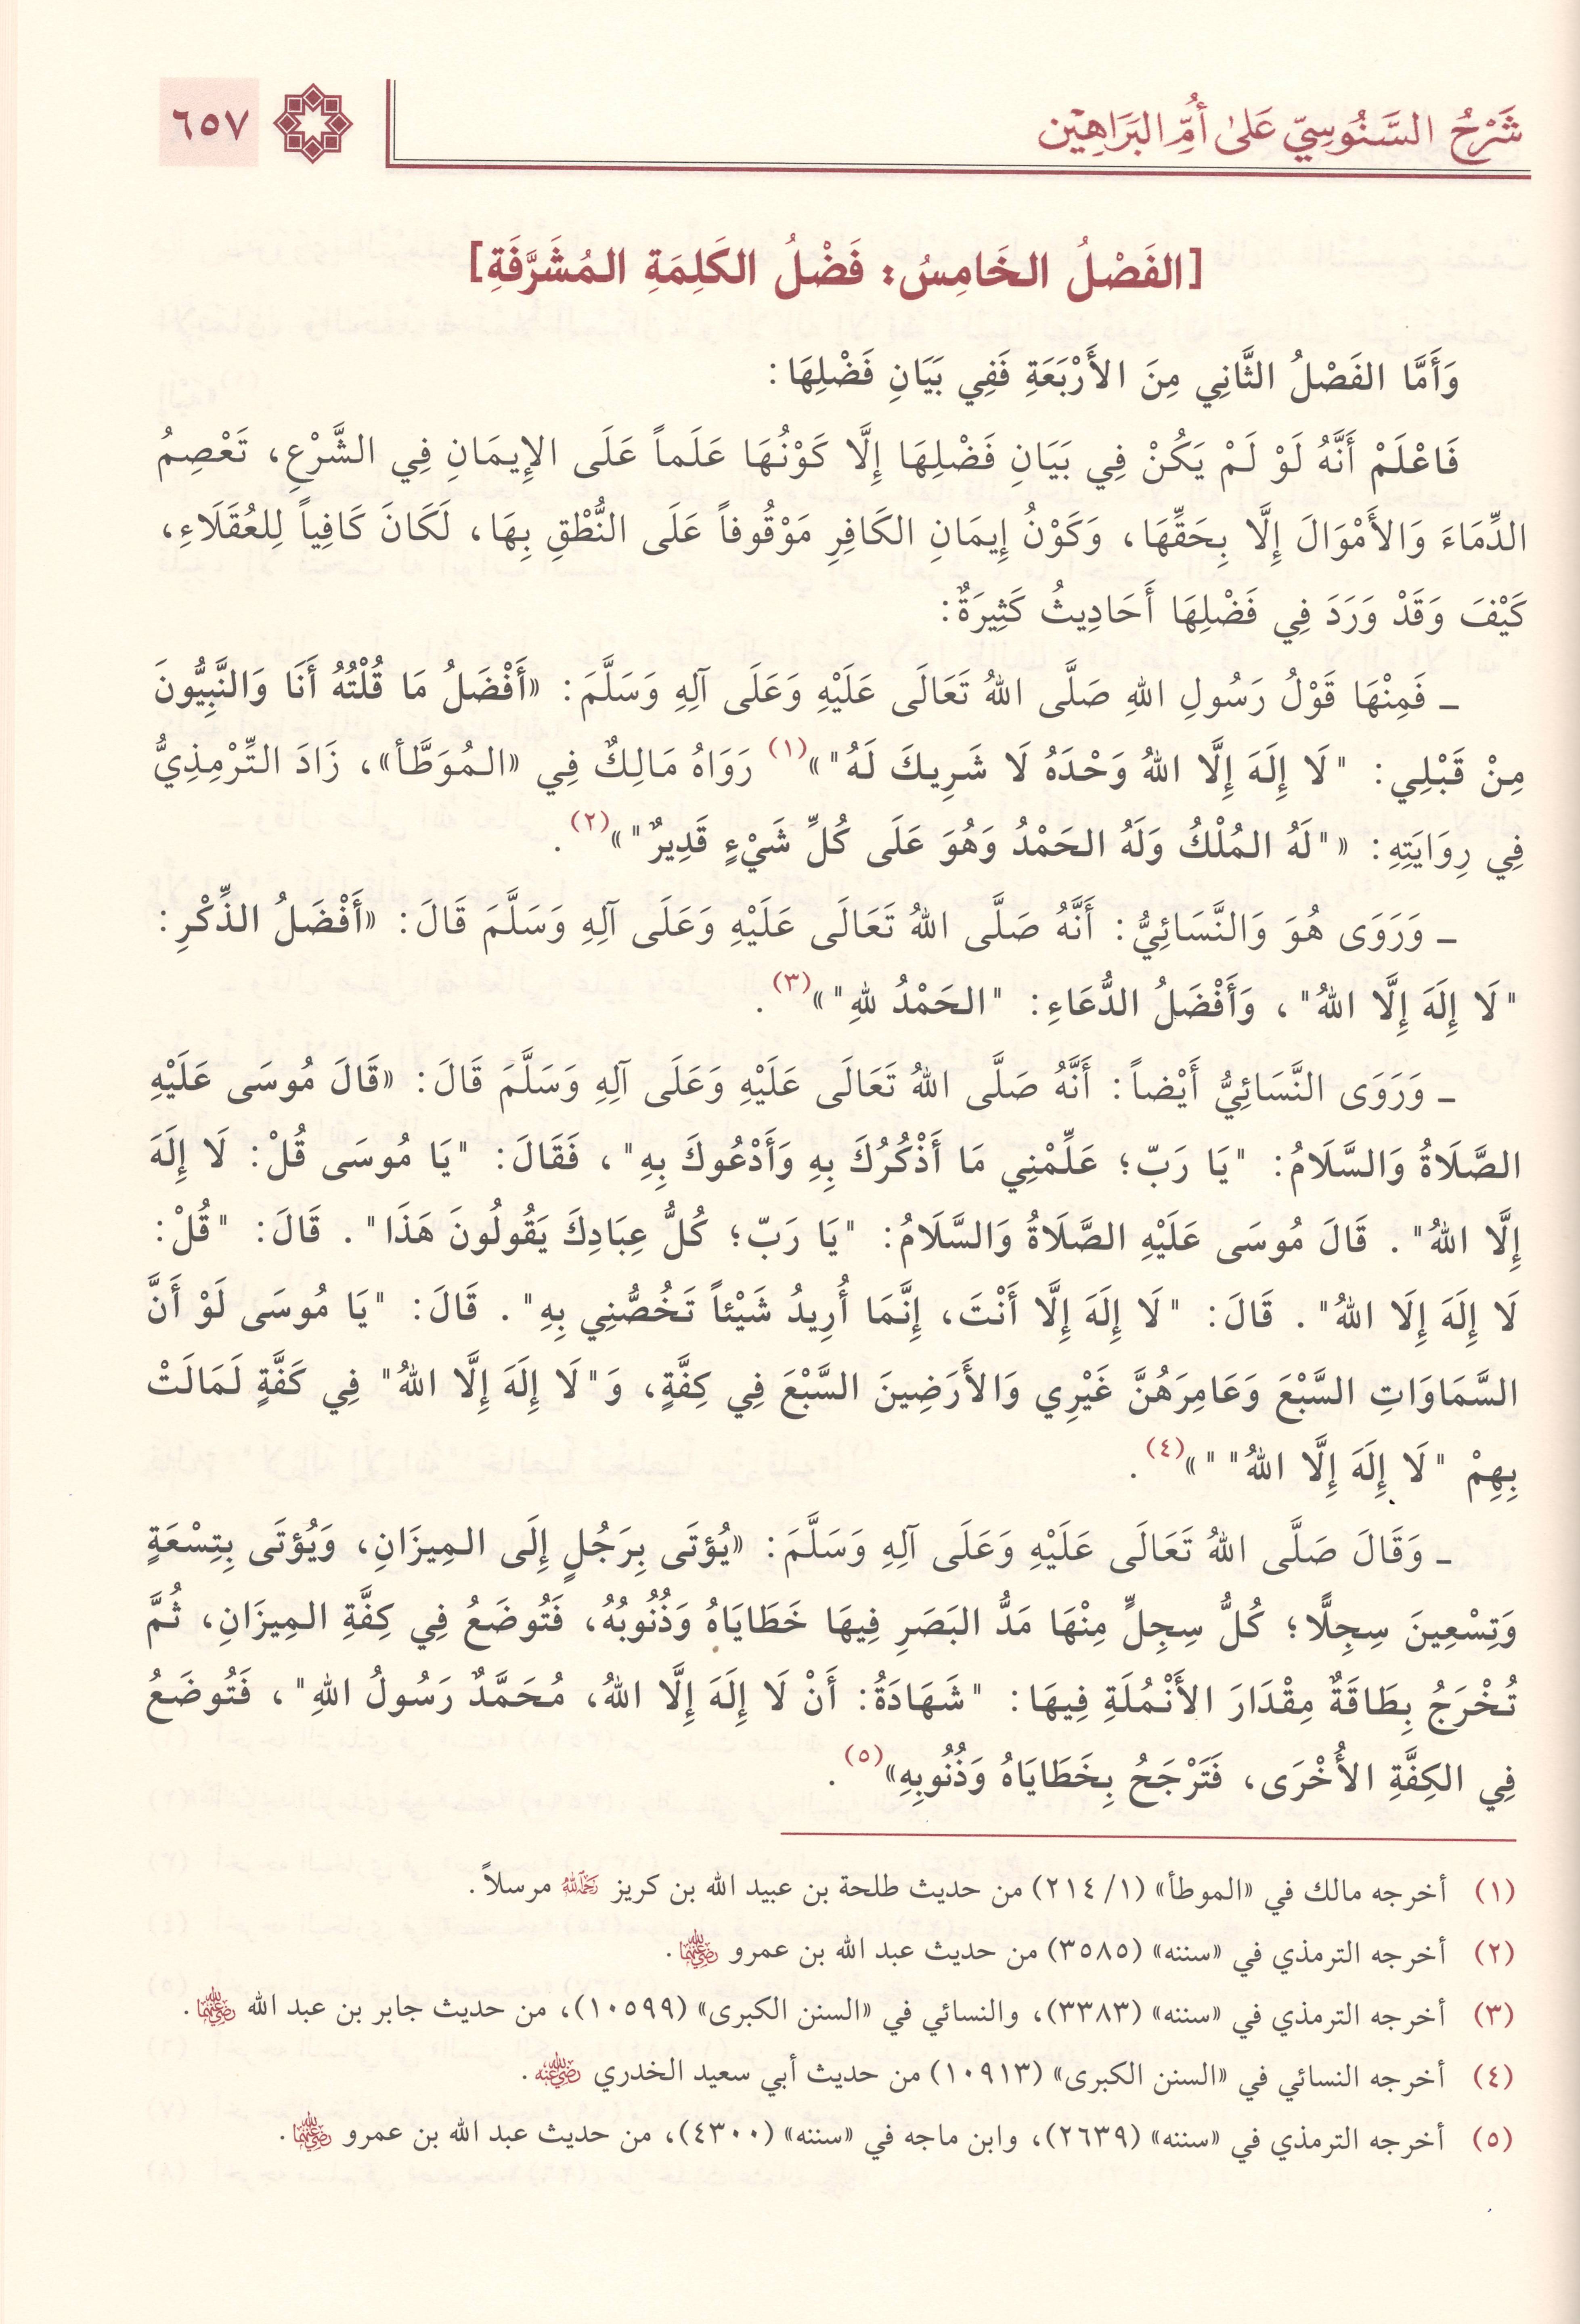 شَرْحُ السَّنُوسِيّ عَلىٰ أُمِّ البَرَاهِيْن
٦٥٧
[الفَصْلُ الخَامِسُ: فَضْلُ الكَلِمَةِ المُشَرَّفَةِ]
وَأَمَّا الفَصْلُ الثَّانِي مِنَ الأَرْبَعَةِ فَفِي بَيَانِ فَضْلِهَا:
فَاعْلَمْ أَنَّهُ لَوْ لَمْ يَكُنْ فِي بَيَانِ فَضْلِهَا إِلَّا كَوْنُهَا عَلَماً عَلَى الإِيمَانِ فِي الشَّرْعِ، تَعْصِمُ
الدِّمَاءَ وَالأَمْوَالَ إِلَّا بِحَقِّهَا، وَكَوْنُ إِيمَانِ الكَافِرِ مَوْقُوفاً عَلَى النُّطْقِ بِهَا، لَكَانَ كَافِياً لِلعُقَلَاءِ،
كَيْفَ وَقَدْ وَرَدَ فِي فَضْلِهَا أَحَادِيثُ كَثِيرَةٌ:
ـ فَمِنْهَا قَوْلُ رَسُولِ اللهِ صَلَّى اللهُ تَعَالَى عَلَيْهِ وَعَلَى آلِهِ وَسَلَّمَ: «أَفْضَلُ مَا قُلْتُهُ أَنَا وَالنَّبِيُّونَ
مِنْ قَبْلِي: "لَا إِلَهَ إِلَّا اللهُ وَحْدَهُ لَا شَرِيكَ لَهُ"»(١) رَوَاهُ مَالِكٌ فِي «المُوَطَّأ»، زَادَ التِّرْمِذِيُّ
فِي رِوَايَتِهِ: «"لَهُ المُلْكُ وَلَهُ الحَمْدُ وَهُوَ عَلَى كُلِّ شَيْءٍ قَدِيرٌ"»(٢).
ـ وَرَوَى هُوَ وَالنَّسَائِيُّ: أَنَّهُ صَلَّى اللهُ تَعَالَى عَلَيْهِ وَعَلَى آلِهِ وَسَلَّمَ قَالَ: «أَفْضَلُ الذِّكْرِ:
"لَا إِلَهَ إِلَّا اللهُ"، وَأَفْضَلُ الدُّعَاءِ: "الحَمْدُ للهِ"»(٣).
ـ وَرَوَى النَّسَائِيُّ أَيْضاً: أَنَّهُ صَلَّى اللهُ تَعَالَى عَلَيْهِ وَعَلَى آلِهِ وَسَلَّمَ قَالَ: «قَالَ مُوسَى عَلَيْهِ
الصَّلَاةُ وَالسَّلَامُ: "يَا رَبّ؛ عَلِّمْنِي مَا أَذْكُرُكَ بِهِ وَأَدْعُوكَ بِهِ"، فَقَالَ: "يَا مُوسَى قُلْ: لَا إِلَهَ
إِلَّا اللهُ". قَالَ مُوسَى عَلَيْهِ الصَّلَاةُ وَالسَّلَامُ: "يَا رَبّ؛ كُلُّ عِبَادِكَ يَقُولُونَ هَذَا". قَالَ: "قُلْ:
لَا إِلَهَ إِلَا اللهُ". قَالَ: "لَا إِلَهَ إِلَّا أَنْتَ، إِنَّمَا أُرِيدُ شَيْئاً تَخُصُّنِي بِهِ". قَالَ: "يَا مُوسَى لَوْ أَنَّ
السَّمَاوَاتِ السَّبْعَ وَعَامِرَهُنَّ غَيْرِي وَالأَرَضِينَ السَّبْعَ فِي كِفَّةٍ، وَ"لَا إِلَهَ إِلَّا اللهُ" فِي كَفَّةٍ لَمَالَتْ
بِهِمْ "لَا إِلَهَ إِلَّا اللهُ" "»(٤).
ـ وَقَالَ صَلَّى اللهُ تَعَالَى عَلَيْهِ وَعَلَى آلِهِ وَسَلَّمَ: «يُؤتَى بِرَجُلٍ إِلَى المِيزَانِ، وَيُؤتَى بِتِسْعَةٍ
وَتِسْعِينَ سِجِلًّا؛ كُلُّ سِجِلٍّ مِنْهَا مَدُّ البَصَرِ فِيهَا خَطَايَاهُ وَذُنُوبُهُ، فَتُوضَعُ فِي كِفَّةِ المِيزَانِ، ثُمَّ
تُخْرَجُ بِطَاقَةٌ مِقْدَارَ الأَنْمُلَةِ فِيهَا: "شَهَادَةُ: أَنْ لَا إِلَهَ إِلَّا اللهُ، مُحَمَّدٌ رَسُولُ اللهِ"، فَتُوضَعُ
فِي الكِفَّةِ الأُخْرَى، فَتَرْجَحُ بِخَطَايَاهُ وَذُنُوبِهِ»(٥).
(١) أخرجه مالك في «الموطأ» (١/ ٢١٤) من حديث طلحة بن عبيد الله بن كريز رَحِمَهُ اللهُ مرسلاً.
(٢) أخرجه الترمذي في «سننه» (٣٥٨٥) من حديث عبد الله بن عمرو رَضِيَ اللهُ عَنْهُمَا.
(٣) أخرجه الترمذي في «سننه» (٣٣٨٣)، والنسائي في «السنن الكبرى» (١٠٥٩٩)، من حديث جابر بن عبد الله رَضِيَ اللهُ عَنْهُمَا.
(٤) أخرجه النسائي في «السنن الكبرى» (١٠٩١٣) من حديث أبي سعيد الخدري رَضِيَ اللهُ عَنْهُ.
(٥) أخرجه الترمذي في «سننه» (٢٦٣٩)، وابن ماجه في «سننه» (٤٣٠٠)، من حديث عبد الله بن عمرو رَضِيَ اللهُ عَنْهُمَا.